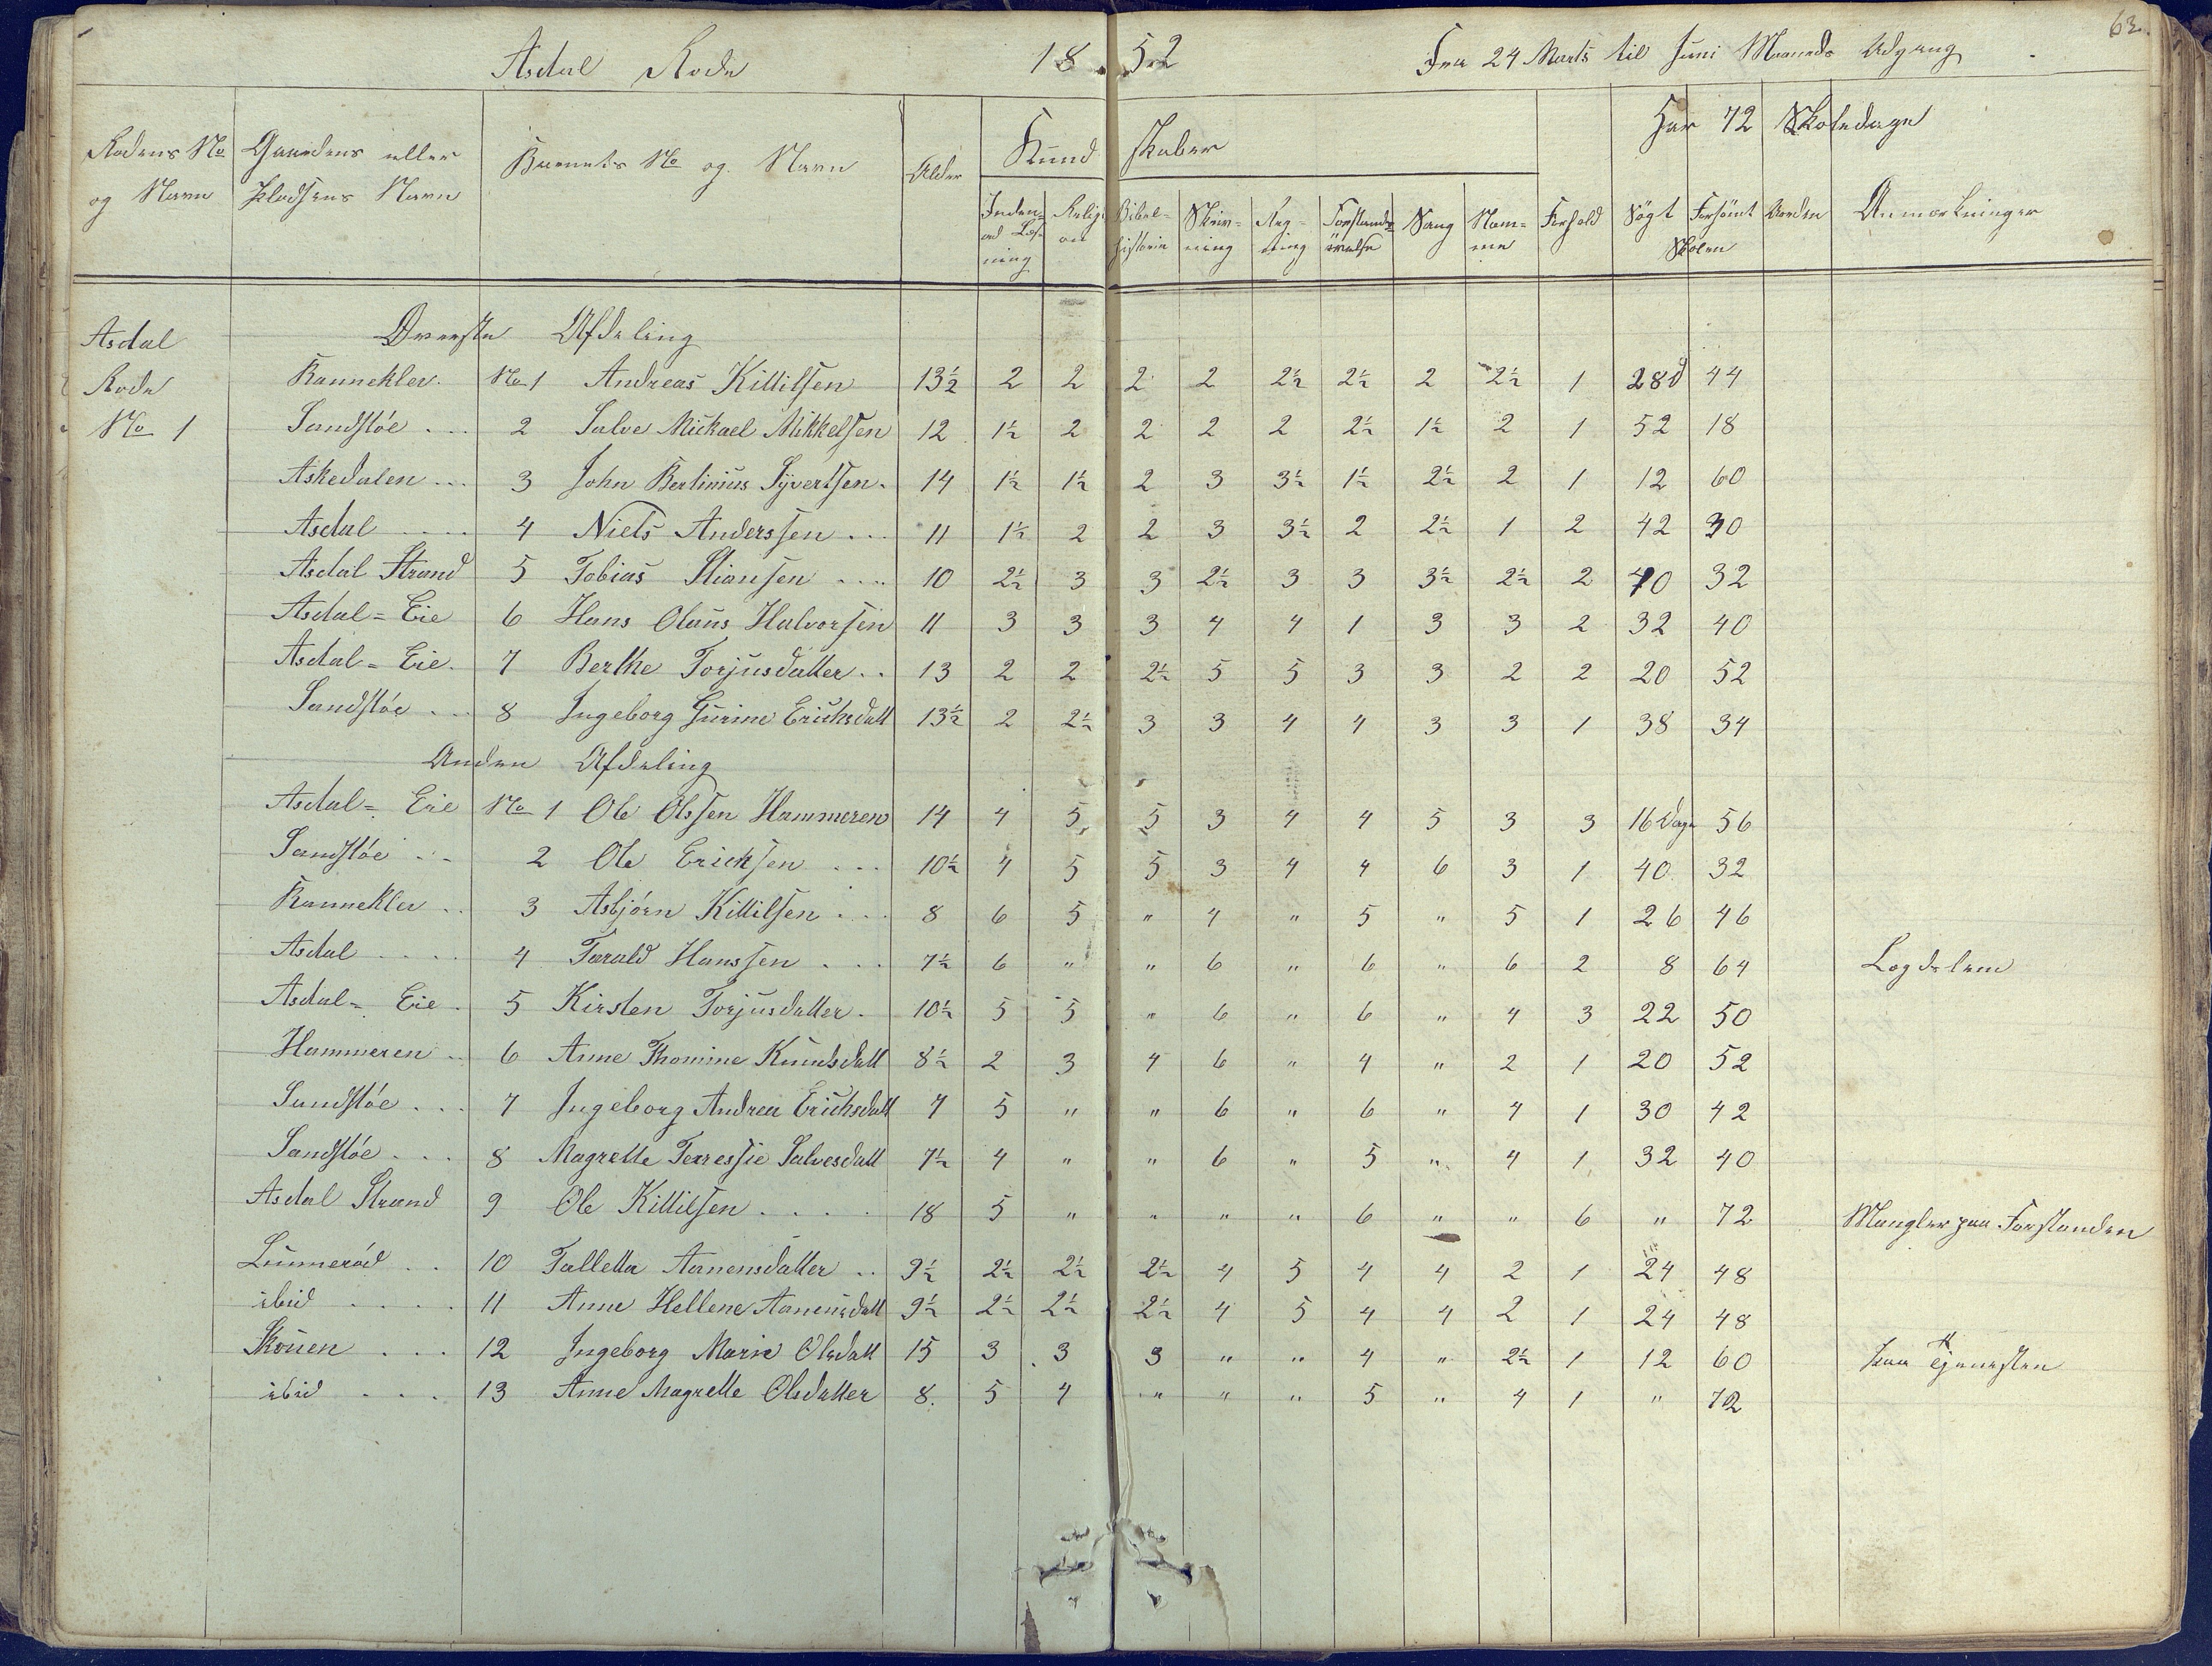 63.
Asdal Rode 1852 Fra 24 Marts til Juni Maaneds Udgang
Rodens No og Navn | Gaardens eller Pladsens Navn | Barnets No og Navn | Alder | Kundskaber | Har 72 Skoledage
Inden=ad Læsning | Religion | Bibelhistorie | Skrivning | Regning | Forstandsövelse | Sang | Nemme | Forhold | Sögt | Forsömt Skolen | Orden | Anmærkninger
Asdal Rode No 1
Øverste Afdeling
Rannekler. No 1 Andreas Kittilsen 13½ 2 2 2 2 2½ 2½ 2 2½ 1 28d 44
Sandstöe ... 2 Salve Mickael Mikkelsen 12 1½ 2 2 2 2 2½ 1½ 2 1 52 18
Askedalen ... 3 John Bertinius Syvertsen. 14 1½ 1½ 2 3 3½ 1½ 2½ 2 1 12 60
Asdal .... 4 Niels Anderssen ... 11 1½ 2 2 3 3½ 2 2½ 1 2 42 30
Asdal Strand 5 Tobias Stiansen .... 10 2½ 3 3 2½ 3 3 3½ 2½ 2 40 32
Asdal=Eie 6 Hans Olaus Halvorsen 11 3 3 3 4 4 1 3 3 2 32 40
Asdal=Eie. 7 Berthe Torjusdatter .. 13 2 2 2½ 5 5 3 3 2 2 20 52
Sandstöe ... 8 Ingeborg Gurine Erichsdatt 13½ 2 2½ 3 3 4 4 3 3 1 38 34
Anden Afdeling
Asdal=Eie No 1 Ole Olssen Hammeren 14 4 5 5 3 4 4 5 3 3 16 Dage 56
Sandstöe ... 2 Ole Ericksen ... 10½ 4 5 5 3 4 4 6 3 1 40 32
Rannekler .. 3 Asbjörn Kittilsen ... 8 6 5 " 4 " 5 " 5 1 26 46
Asdal .... 4 Tarald Hanssen ... 7½ 6 " " 6 " 6 " 6 2 8 64 Lægdslem
Asdal=Eie. 5 Kirsten Torjusdatter. 10½ 5 5 " 6 " 6 " 4 3 22 50
Hammeren .. 6 Anne Thomine Knudsdatt 8½ 2 3 4 6 " 4 " 2 1 20 52
Sandstöe ... 7 Ingeborg Andrea Erichsdatt 7 5 " " 6 " 6 " 4 1 30 42
Sandstöe ... 8 Magrette Terressie Salvesdatt 7½ 4 " " 6 " 5 " 4 1 32 40
Asdal Strand 9 Ole Kittilsen .... 18 5 " " " " 6 " " 6 " 72 Mangler paa Forstanden
Lunneröd .. 10 Talletta Aanensdatter .. 9½ 2½ 2½ 2½ 4 5 4 4 2 1 24 48
ibid .... 11 Anne Hellene Aanensdatt 9½ 2½ 2½ 2½ 4 5 4 4 2 1 24 48
Skouen ... 12 Ingeborg Marie Olsdatt 15 3 3 3 " " 4 " 2½ 1 12 60 paa Tjenesten
ibid ... 13 Anne Magrette Olsdatter 8. 5 4 " " " 5 " 4 1 " 72